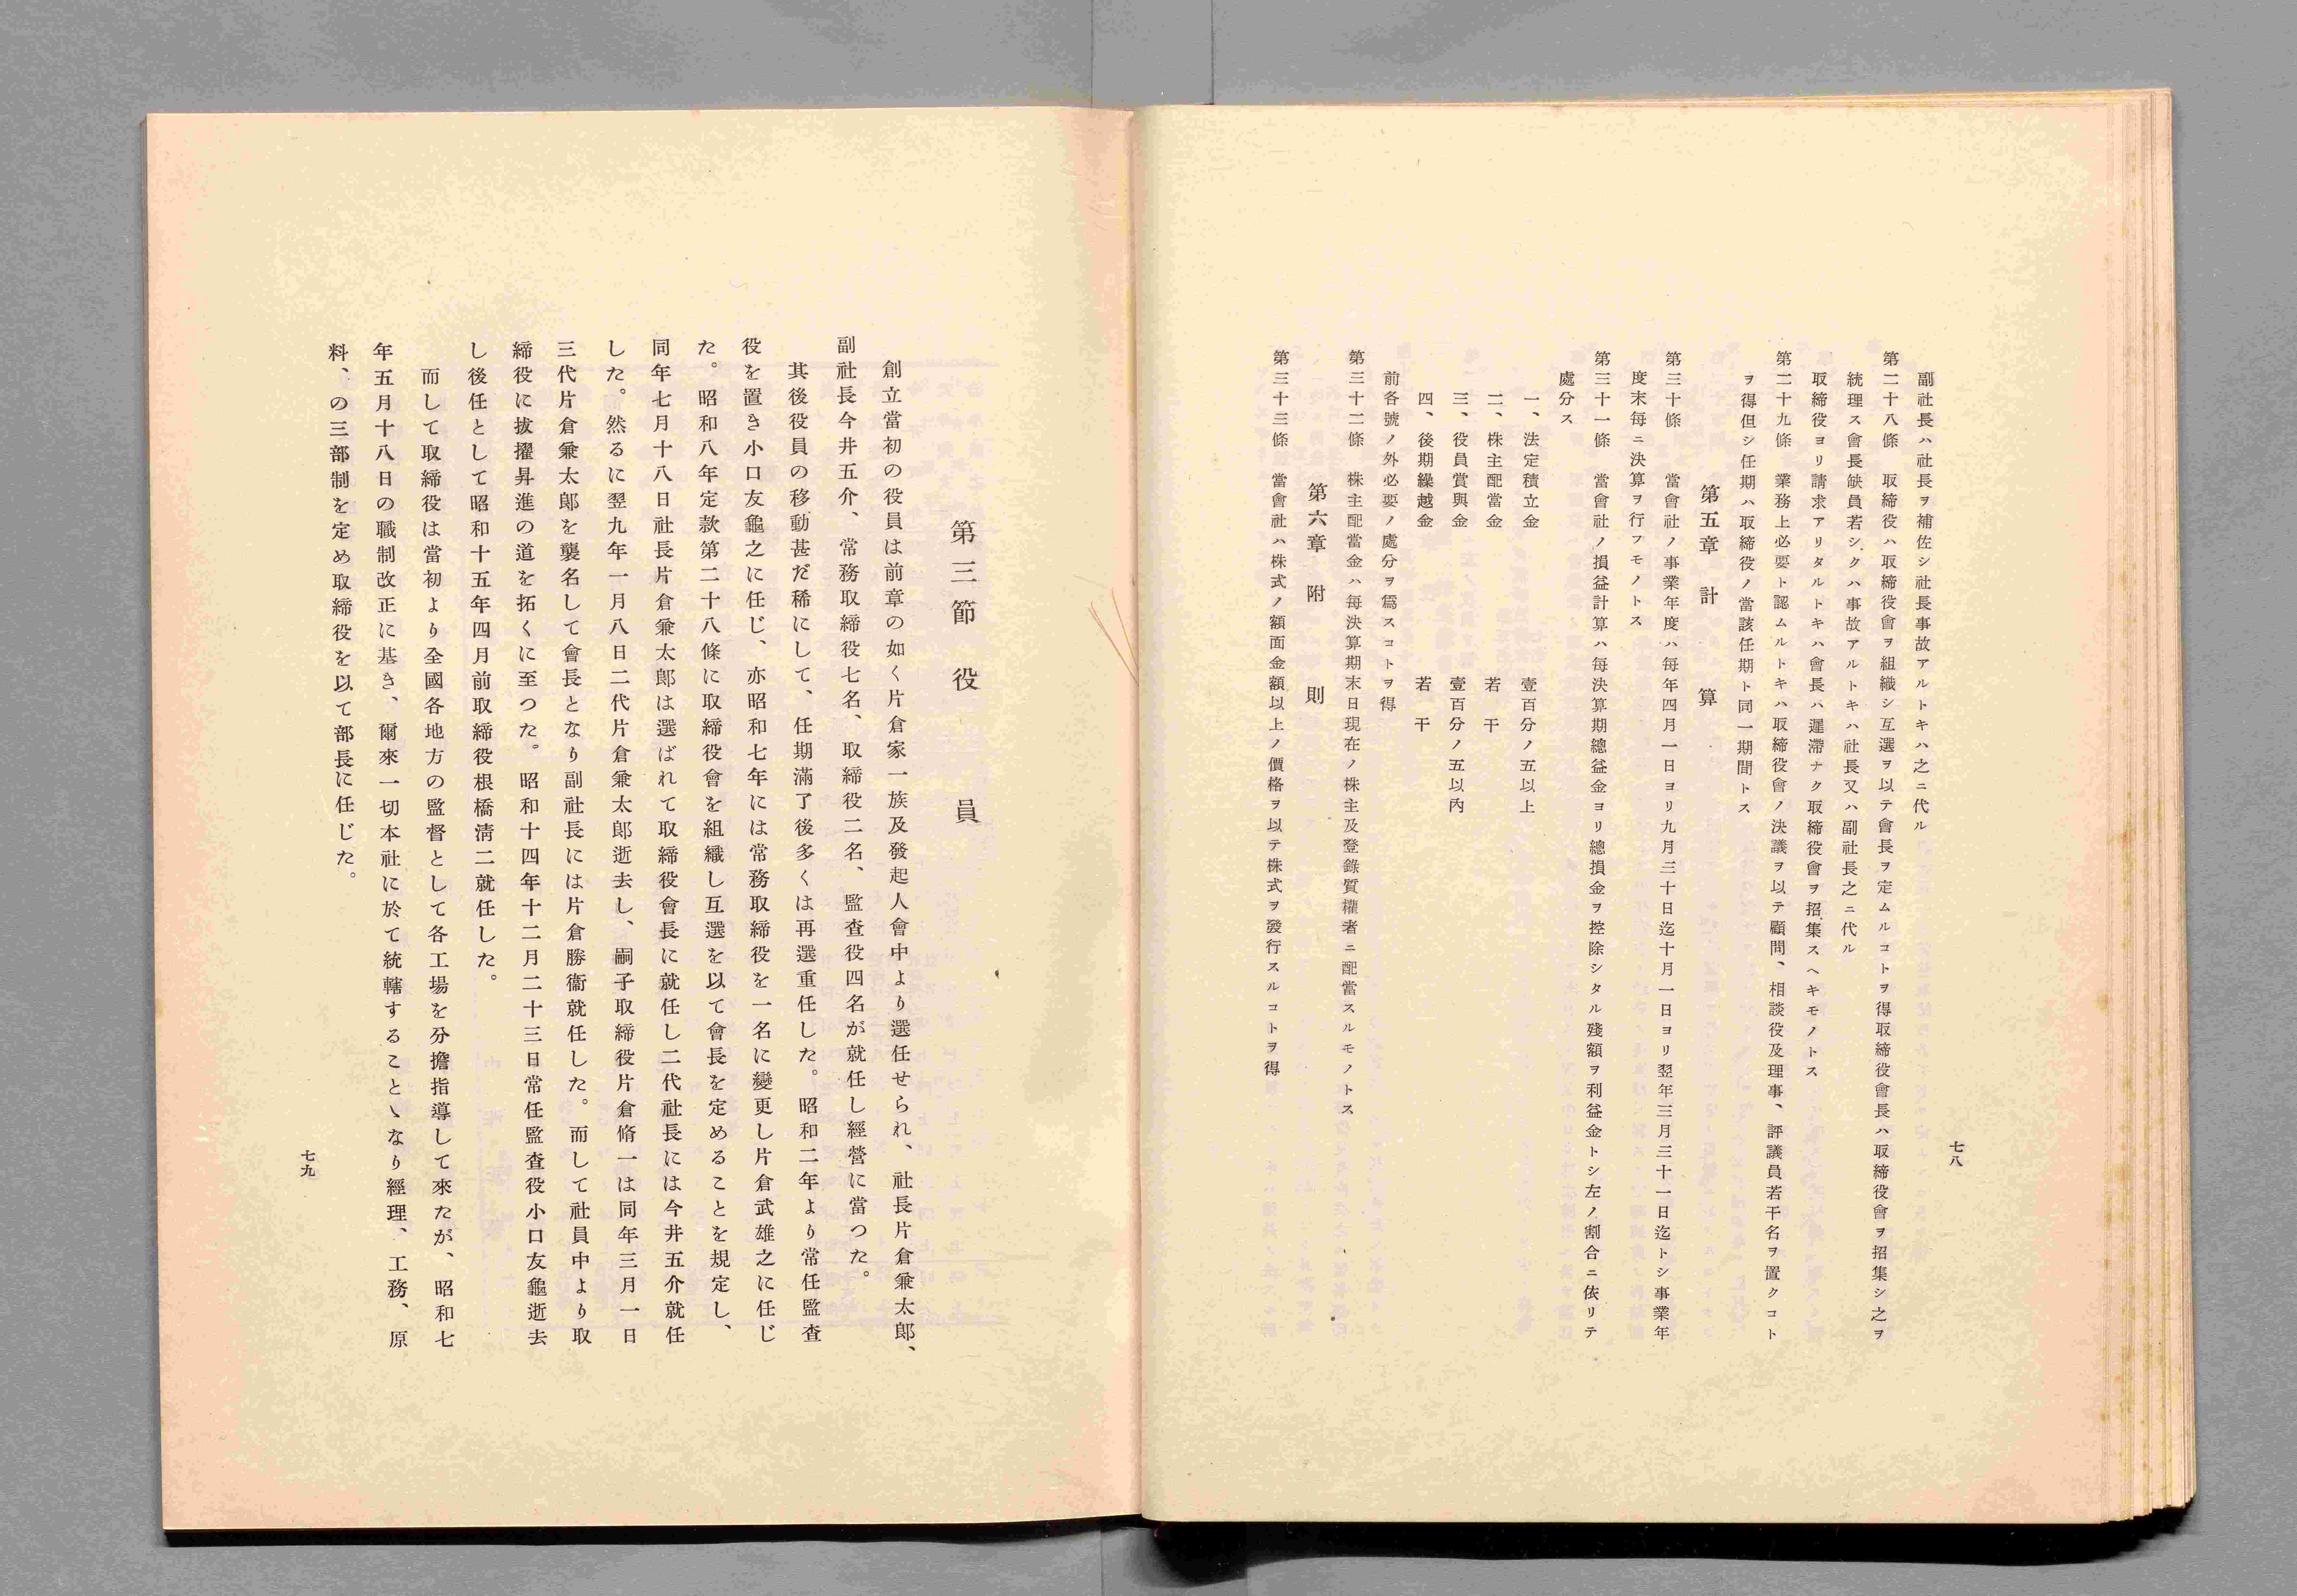 七八
副社長ハ社長ヲ補佐シ社長事故アルトキハ之ニ代ル
第二十八條　取締役ハ取締役會ヲ組織シ互選ヲ以テ會長ヲ定ムルコトヲ得取締役會長ハ取締役會ヲ招集シ之ヲ
統理ス會長缺員若シクハ事故アルトキハ社長又ハ副社長之ニ代ル
取締役ヨリ請求アリタルトキハ會長ハ遲滯ナク取締役會ヲ招集スヘキモノトス
第二十九條　業務上必要ト認ムルトキハ取締役會ノ決議ヲ以テ顧問、相談役及理事、評議員若干名ヲ置クコト
ヲ得但シ任期ハ取締役ノ當該任期ト同一期間トス
第五章　計　算
第三十條　當會社ノ事業年度ハ每年四月一日ヨリ九月三十日迄十月一日ヨリ翌年三月三十一日迄トシ事業年
度末每ニ決算ヲ行フモノトス
第三十一條　當會社ノ損益計算ハ每決算期總益金ヨリ總損金ヲ控除シタル殘額ヲ利益金トシ左ノ割合ニ依リテ
處分ス
一、法定積立金　壹百分ノ五以上
二、株主配當金　若干
三、役員賞與金　壹百分ノ五以內
四、後期繰越金　若干
前各號ノ外必要ノ處分ヲ爲スコトヲ得
第三十二條　株主配當金ハ每決算期末日現在ノ株主及登錄質權者ニ配當スルモノトス
第六章　附　則
第三十三條　當會社ハ株式ノ額面金額以上ノ價格ヲ以テ株式ヲ發行スルコトヲ得
第三節　役　員
創立當初の役員は前章の如く片倉家一族及發起人會中より選任せられ、社長片倉兼太郞、
副社長今井五介、常務取締役七名、取締役二名、監査役四名が就任し經營に當つた。
其後役員の移動甚だ稀にして、任期滿了後多くは再選重任した。昭和二年より常任監査
役を置き小口友龜之に任じ、亦昭和七年には常務取締役を一名に變更し片倉武雄之に任じ
た。昭和八年定款第二十八條に取締役會を組織し互選を以て會長を定めることを規定し、
同年七月十八日社長片倉兼太郞は選ばれて取締役會長に就任し二代社長には今井五介就任
した。然るに翌九年一月八日二代片倉兼太郞逝去し、嗣子取締役片倉脩一は同年三月一日
三代片倉兼太郞を襲名して會長となり副社長には片倉勝衞就任した。而して社員中より取
締役に拔擢昇進の道を拓くに至つた。昭和十四年十二月二十三日常任監査役小口友龜逝去
し後任として昭和十五年四月前取締役根橋淸二就任した。
而して取締役は當初より全國各地方の監督として各工場を分擔指導して來たが、昭和七
年五月十八日の職制改正に基き、爾來一切本社に於て統轄することゝなり經理、工務、原
料、の三部制を定め取締役を以て部長に任じた。
七九